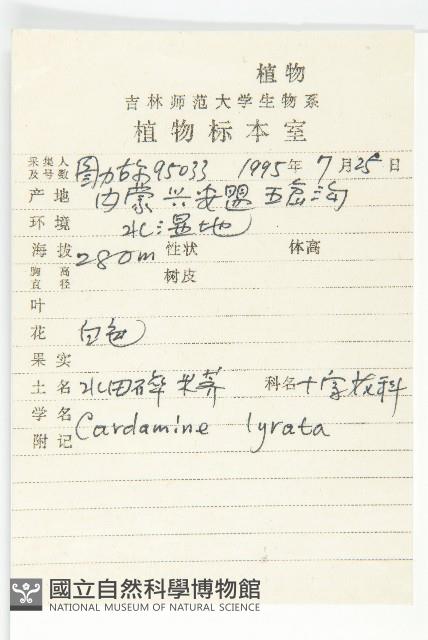 植物
吉林师范大学生物系
植物标本室
采集人及号数 图力古尔95033 1995年7月25日
产地 内蒙兴安盟五岔沟
环境 水湿地
海拔 280m 性状 体高
胸高直径 树皮
叶
花 白色
果实
土名 水田碎米荠 科名 十字花科
学名 Cardamine lyrata
附记
國立自然科學博物館
NATIONAL MUSEUM OF NATURAL SCIENCE